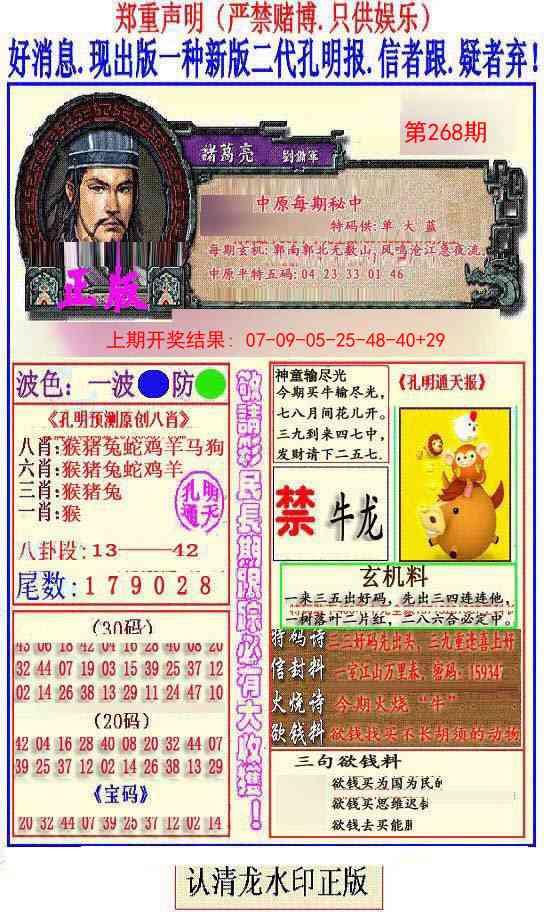 郑重声明（严禁赌博.只供娱乐）
好消息.现出版一种新版二代孔明报.信者跟.疑者弃!
第268期
諸葛亮 劉備軍
中原每期秘中
特码供:单 大 蓝
每期玄机:郭南郭北无数山,风鸣沧江急夜流.
中原平特五码:04 23 33 01 46
正版
上期开奖结果: 07-09-05-25-48-40+29
波色: 一波 防
《孔明预测原创八肖》
八肖:猴猪兔蛇鸡羊马狗
六肖:猴猪兔蛇鸡羊
三肖:猴猪兔
一肖:猴
孔明
通天
八卦段:13——42
尾数:179028
(30码)
43 06 18 42 04 16 28 40 08 20
32 44 07 19 03 15 39 25 37 12
02 14 26 38 13 29 11 24 47 10
(20码)
42 04 16 28 40 08 20 32 44 07
39 25 37 12 02 14 26 38 13 29
《宝码》
20 32 44 07 39 25 37 12 02 14
敬請彩民長期跟踪必有大收獲!
神童输尽光
今期买牛输尽光,
七八月间花儿开。
三九到来四七中,
发财请下二五七.
《孔明通天报》
禁 牛龙
玄机料
一来三五出好码，先出三四连连他,
一树落叶二片红，二八六合必定中。
特码诗 三三好码先出头，三九重连喜上好
信封料 一室江山万里春，密码：159347
火烧诗 今期火烧“牛”
欲钱料 欲钱找买不长胡须的动物
三句欲钱料
欲钱买为国为民的
欲钱买思维迟
欲钱去买能
认清龙水印正版